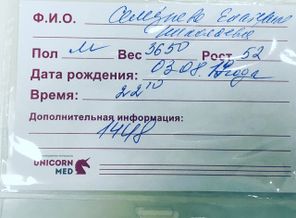 Ф.И.О. Селезнева Екатерина
Николаевна
Пол м Вес 3650 Рост 52
Дата рождения: 03.08.19 года
Время: 22 10
Дополнительная информация:
1448
UNICORN
MED